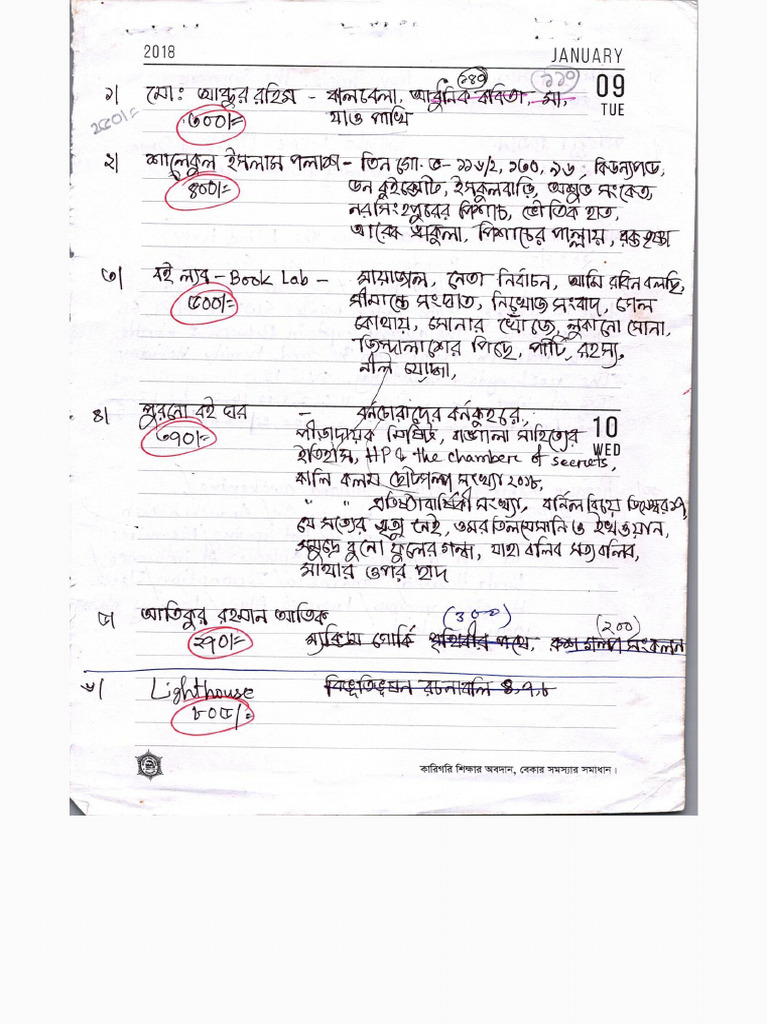 2018 JANUARY
09
TUE
১৪০ ১১০
১| মোঃ আব্দুর রহিম - কালবেলা, আধুনিক কবিতা, মা,
২৫০/= ৩০০/= যাও পাখি
২| শালেকুল ইসলাম পলাশ - তিন গো. ভ- ১১৬/২, ১৩০, ৯৬,
৪০০/= ডন কুইক্সোট, ইসকুলবাড়ি, অশুভ সংকেত,
নরসিংহপুরের পিশাচ, ভৌতিক হাত,
ড্রাকুলা, পিশাচের পাল্লায়, রক্ততৃষ্ণা
৩| বই ল্যাব - Book Lab - মায়াজাল, নেতা নির্বাচন, আমি রবিন বলছি,
৫০০/= সীমান্তে সংঘাত, নিখোঁজ সংবাদ, গেল
কোথায়, সোনার খোঁজে, লুকানো সোনা,
জিন্দালাশের পিছে, পার্টি, রহস্য,
নীল
৪| পুরনো বই ঘর - বর্নচোরাদের বর্নকুহরে,
৩৭০/= বাঙ্গালা সাহিত্যের
10
WED
ইতিহাস, HP & the chamber of seerets,
কালি কলম ছোটগল্প সংখ্যা ২০১৮,
" " প্রতিষ্ঠাবার্ষিকী সংখ্যা, বিজয় ডিসেম্বর ১৭,
যে সত্যের মৃত্যু নেই, ওমর তিলমেসানি ও ইখওয়ান,
সমুদ্রে বুনো ফুলের গন্ধ, যাহা বলিব সত্য বলিব,
মাথার ওপর ছাদ
৫| আতিকুর রহমান আতিক (300) (200)
২৭০/= ম্যাক্সিম গোর্কি পৃথিবীর পথে, রুশ গল্প সংকলন
৬| Lighthouse বিভূতিভূষন রচনাবলি ৪,৭,৮
৮০৫/=
কারিগরি শিক্ষার অবদান, বেকার সমস্যার সমাধান।